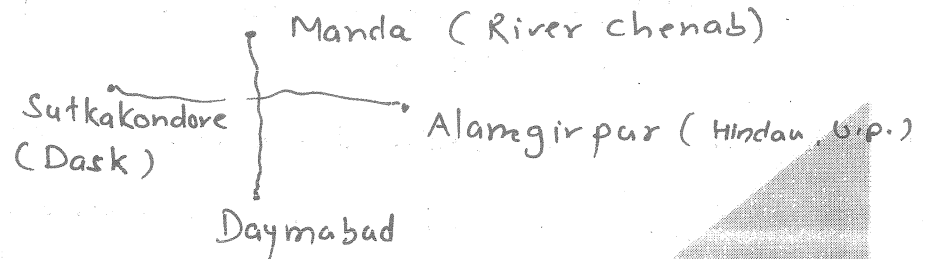 Manda (River Chenab)
Sutkakondore
(Dask)
Alamgirpur (Hindan, U.P.)
Daymabad